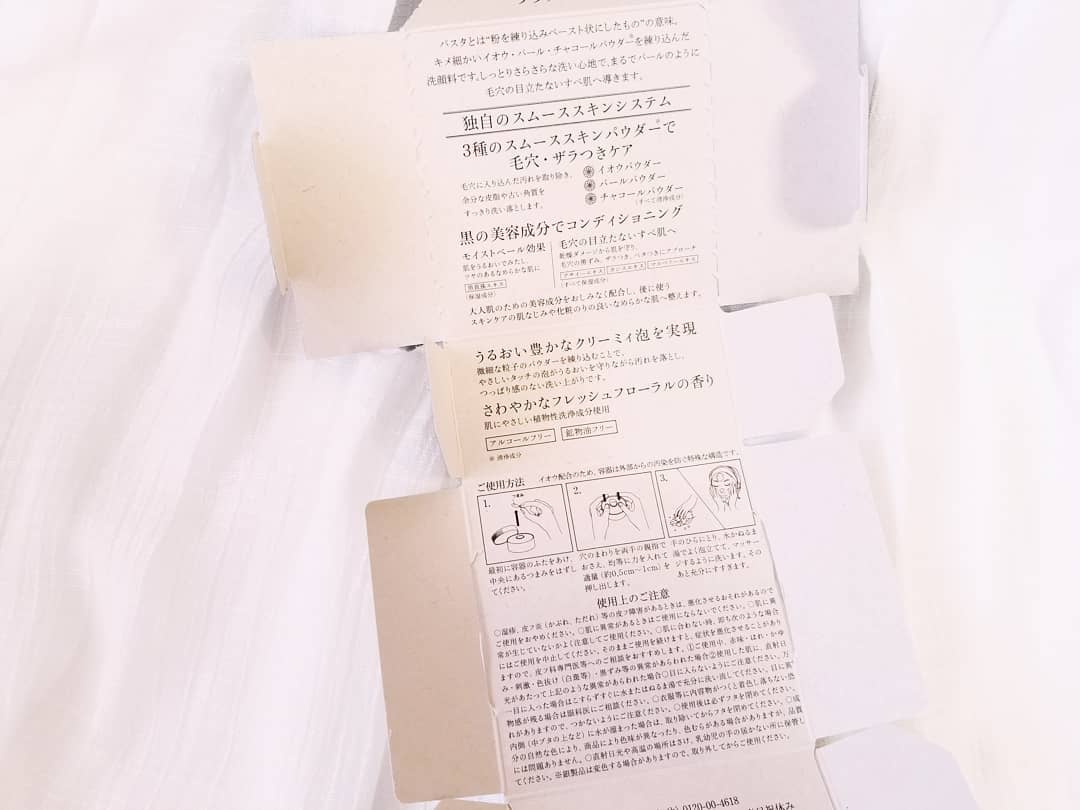 パスタとは"粉を練り込みペースト状にしたもの"の意味。
キメ細かいイオウ・パール・チャコールパウダー※を練り込んだ
洗顔料です。しっとりさらさらな洗い心地で、まるでパールのように
毛穴の目立たないすべ肌へ導きます。
独自のスムーススキンシステム
3種のスムーススキンパウダー※で
毛穴・ザラつきケア
毛穴に入り込んだ汚れを取り除き、
余分な皮脂や古い角質を
すっきり洗い落とします。
イオウパウダー
パールパウダー
チャコールパウダー
(すべて清浄成分)
黒の美容成分でコンディショニング
モイストベール効果
肌をうるおいでみたし、
ツヤのあるなめらかな肌に
(保湿成分)
毛穴の目立たないすべ肌へ
乾燥ダメージから肌を守り、
毛穴の黒ずみ、ザラつき、ベタつきにアプローチ
(すべて保湿成分)
大人肌のための美容成分をおしみなく配合し、後に使う
スキンケアの肌なじみや化粧のりの良いなめらかな肌へ整えます。
うるおい豊かなクリーミィ泡を実現
微細な粒子のパウダーを練り込むことで、
やさしいタッチの泡がうるおいを守りながら汚れを落とし、
つっぱり感のない洗い上がりです。
さわやかなフレッシュフローラルの香り
肌にやさしい植物性洗浄成分使用
アルコールフリー 鉱物油フリー
※ 清浄成分
ご使用方法 イオウ配合のため、容器は外部からの汚染を防ぐ特殊な構造です。
1. つまみ
2.
3.
最初に容器のふたをあけ、
中央にあるつまみをはずし
てください。
穴のまわりを両手の親指で
おさえ、均等に力を入れて
適量(約0.5cm〜1cm)を
押し出します。
手のひらにとり、水かぬるま
湯でよく泡立てて、マッサー
ジするように洗います。その
あと充分にすすぎます。
使用上のご注意
○湿疹、皮フ炎(かぶれ、ただれ)等の皮フ障害があるときは、悪化させるおそれがあるので
ご使用をおやめください。○肌に異常があるときはご使用にならないでください。○肌に異
常が生じていないかよく注意してご使用ください。○肌に合わない時、即ち次のような場合
にはご使用を中止してください。そのままご使用を続けますと、症状を悪化させることがあり
ますので、皮フ科専門医等へのご相談をおすすめします。①ご使用中、赤味・はれ・かゆ
み・刺激・色抜け(白斑等)・黒ずみ等の異常があらわれた場合②使用した肌に、直射日
光があたって上記のような異常があらわれた場合○目に入らないようにご注意ください。万
一目に入った場合はこすらずすぐに水またはぬるま湯で充分に洗い流してください。目に異
物感が残る場合は眼科医にご相談ください。○衣服等に内容物がつくと着色し落ちない恐
れがありますので、つかないようにご注意ください。○使用後は必ずフタを閉めてください。
内側(中ブタの上など)に水が溜まった場合は、取り除いてからフタを閉めてください。○成
分の自然な色により、商品により色味が異なったり、色むらがある場合がありますが、品質
には問題ありません。○直射日光や高温の場所はさけ、乳幼児の手の届かない所に保管し
てください。※銀製品は変色する場合がありますので、取り外してからご使用ください。
0120-00-4618